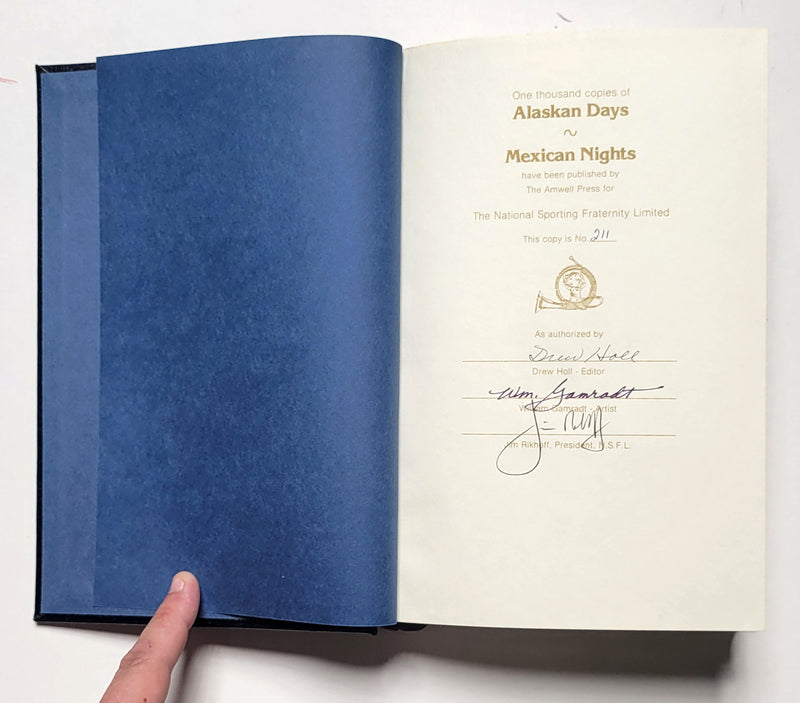 One thousand copies of
Alaskan Days
~
Mexican Nights
have been published by
The Amwell Press for
The National Sporting Fraternity Limited
This copy is No. 211
As authorized by
Drew Holl
Drew Holl - Editor
Wm. Gamradt
William Gamradt - Artist
Jim Rikhoff
Jim Rikhoff, President, N.S.F.L.